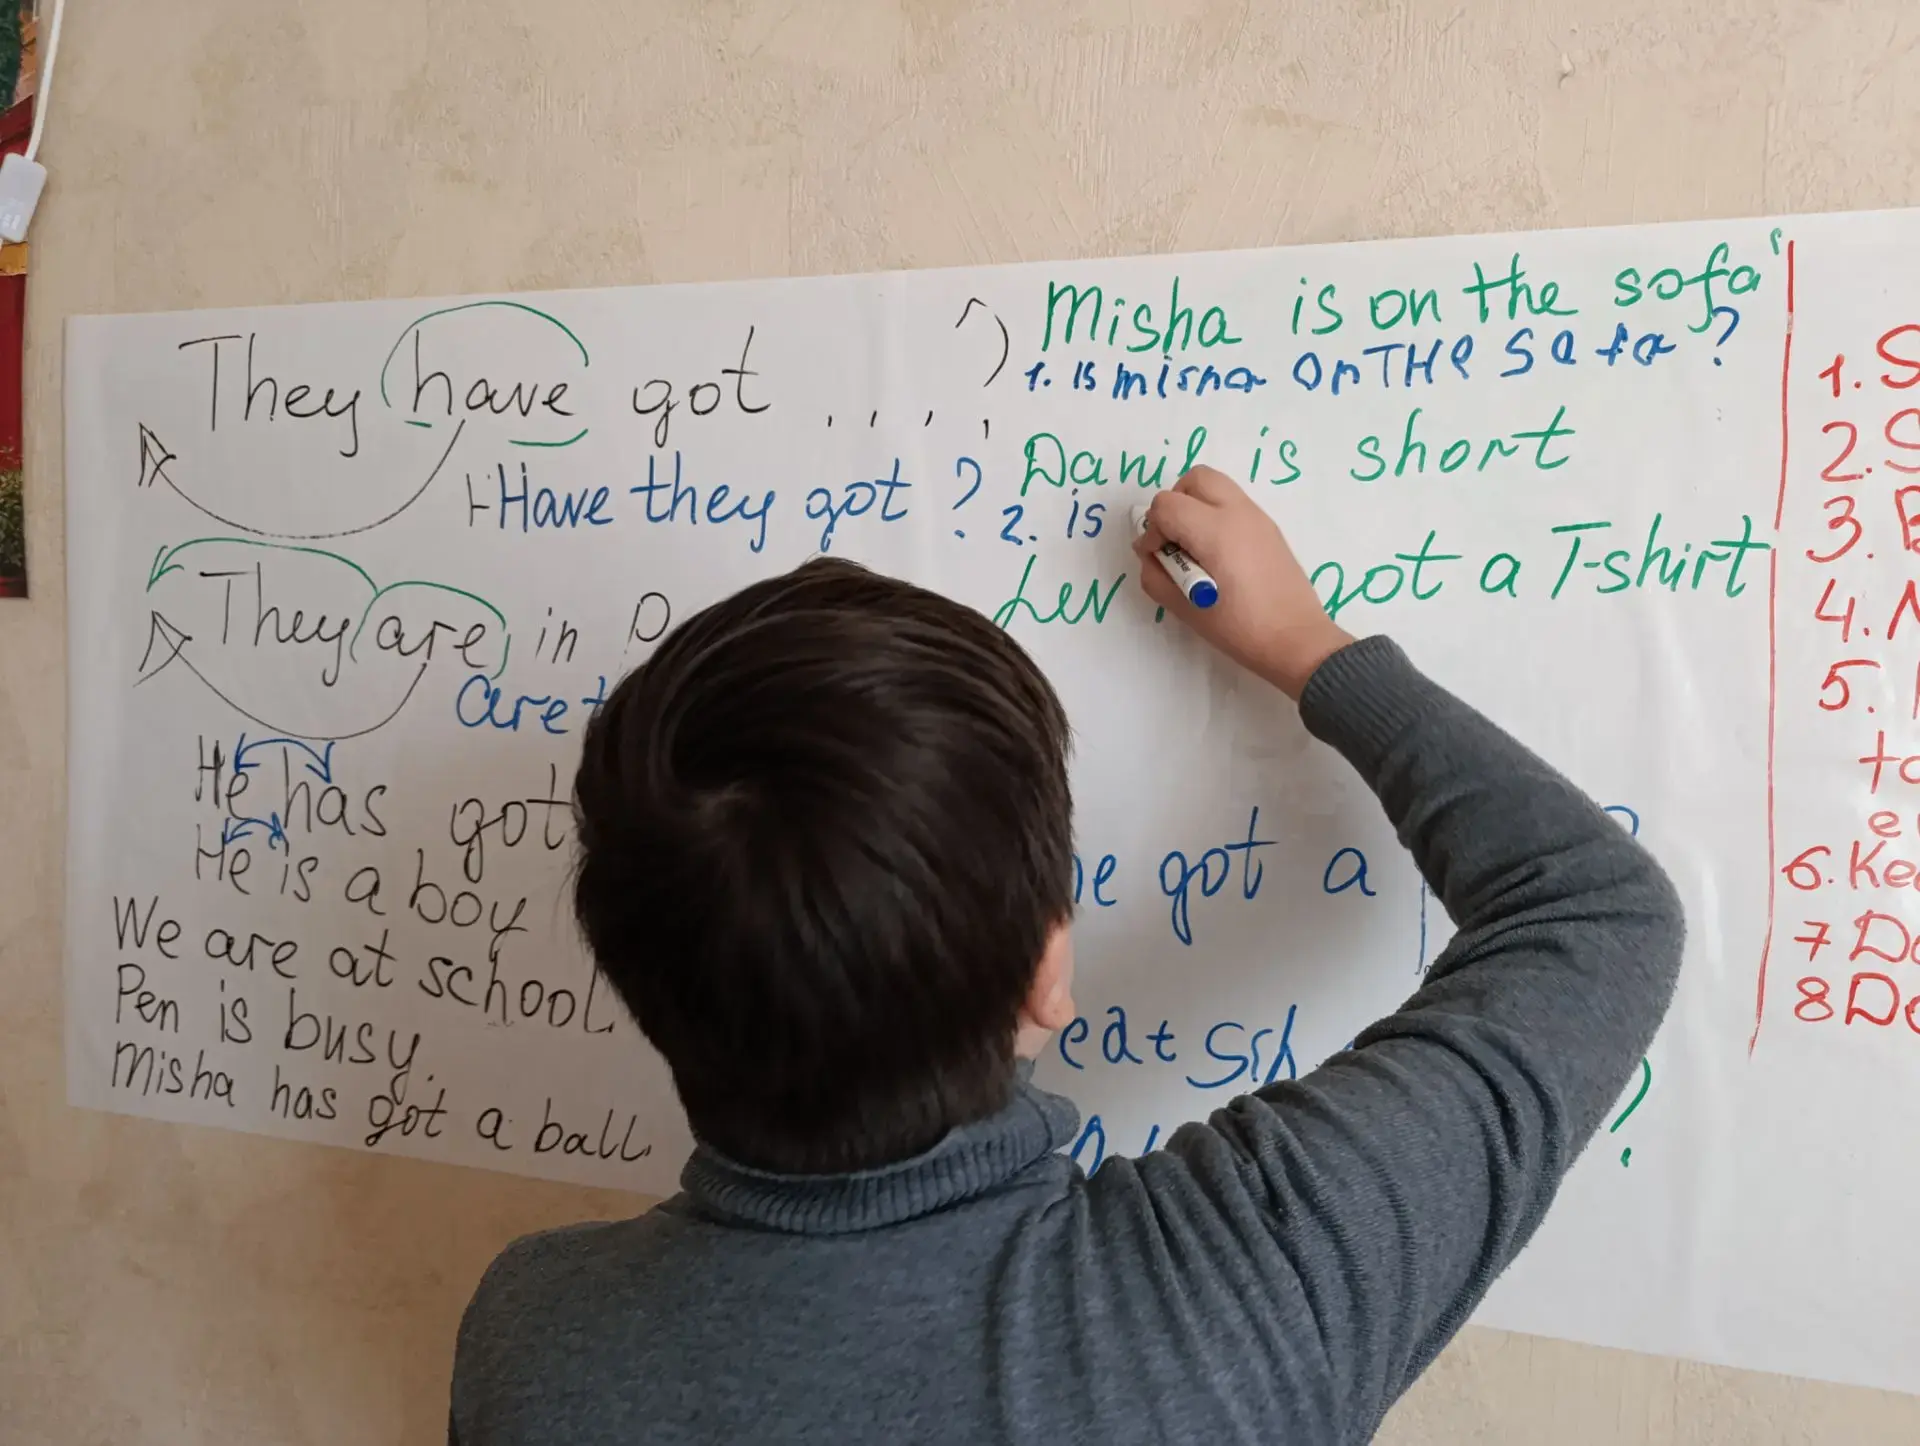 They have got ....
Have they got ?
They are in
are
He has got
He is a boy
We are at school.
Pen is busy.
Misha has got a ball.
Misha is on the sofa
1. is misha on THe Sofa ?
Danil is short
2. is
Lev got a T-shirt
got a
eat
?
1. S
2. S
3. B
4. N
5.
to
6. Kee
7 Do
8 Do